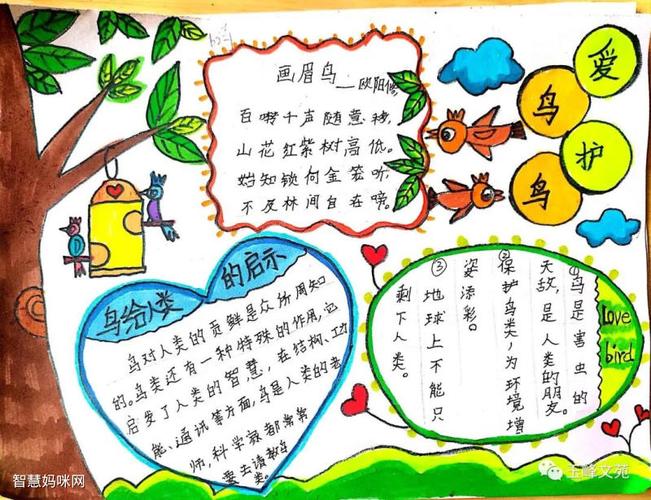 爱鸟护鸟
画眉鸟
—欧阳修
百啭千声随意移,
山花红紫树高低。
始知锁何金笼听,
不及林间自在啼。
鸟给人类的启示
鸟对人类的贡鲜是众所周知
的。鸟类还有一种特殊的作用,还
启发了人类的智慧,在结构、功
能、通讯等方面,鸟是人类的老
师,科学家都常常
要去请教鸟
类。
①鸟是害虫的
天敌,是人类的朋友。
②保护鸟类,为环境增
姿添彩。
③地球上不能只
剩下人类。
Love
bird
智慧妈咪网
玉峰文苑